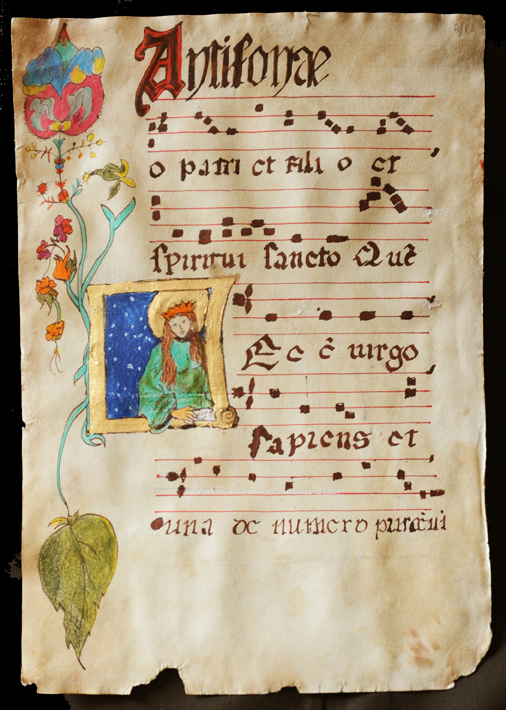 Antifonae
o patri et fili o et
spiritui sancto Quē
Ec ē uirgo
sapiens et
una de numero